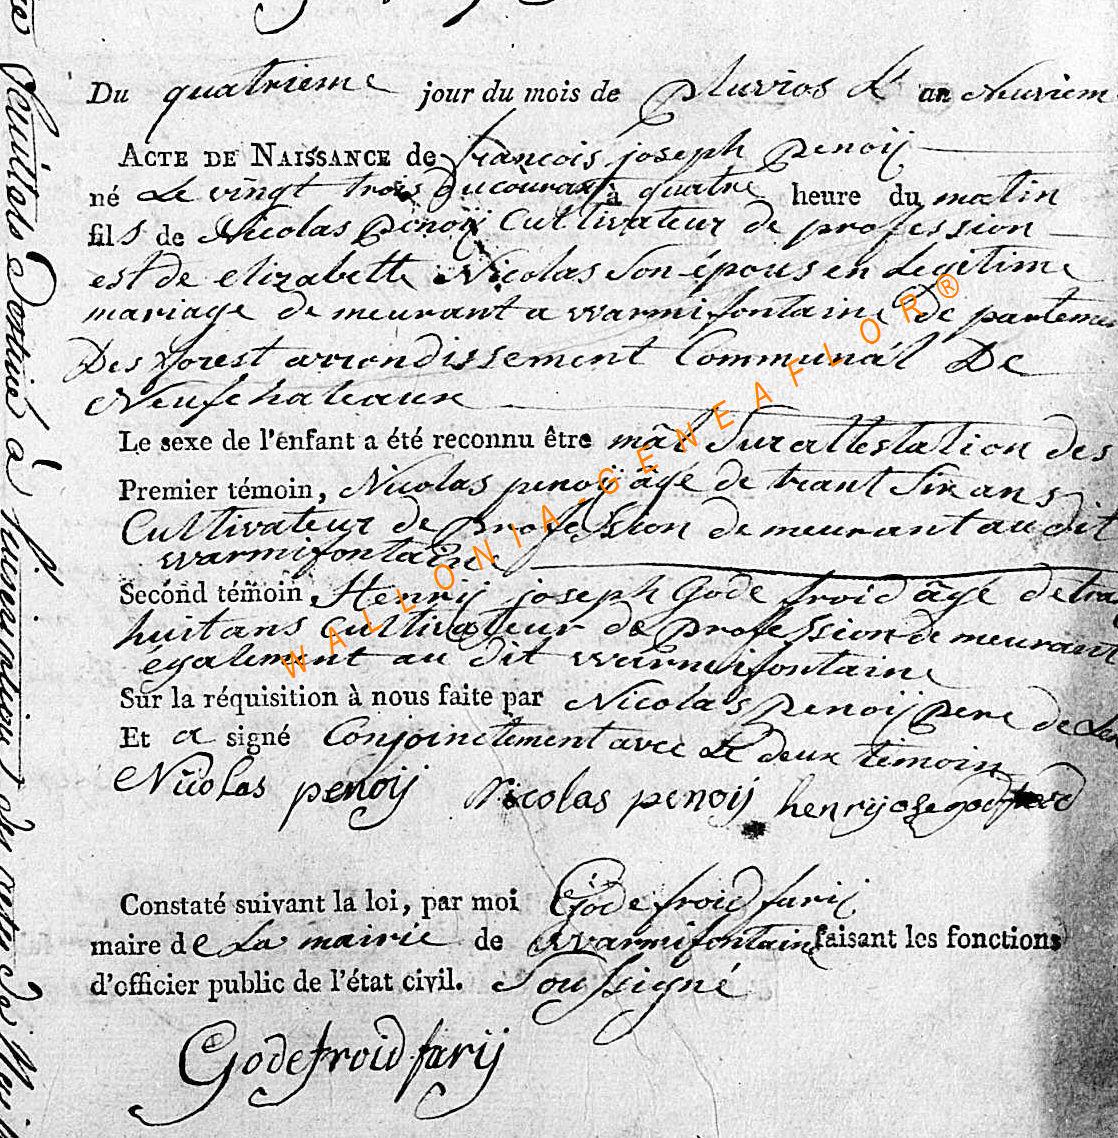 Du quatrieme jour du mois de pluvios de l'an Neuviem
ACTE DE NAISSANCE de francois joseph penoij
né Le vingt trois du courant à quatre heure du matin
fils de Nicolas penoij Cultivateur de profession
est de elizabette Nicolas Son épous en Legitime
mariage de meurant a warmifontaine de partemen
Des forest arrondissement Communal De
Neufchateaux
Le sexe de l'enfant a été reconnu être mâl Sur attestation des
Premier témoin, Nicolas penoij âgé de trant Six ans
Cultivateur de profession de meurant au dit
warmifontaine
Second témoin Henrij joseph Gode froid âgé de tra
huit ans cultivateur de profession de meurant
également au dit warmifontaine
Sur la réquisition à nous faite par Nicolas penoij pere de
Et a signé Conjoinctement avec Le deux temoin
Nicolas penoij Nicolas penoij henrij
Constaté suivant la loi, par moi Gode froid farij
maire de La mairie de warmifontaine faisant les fonctions
d'officier public de l'état civil. Soussigné
Godefroid farij
WALLONIA-GENEAFLOR®